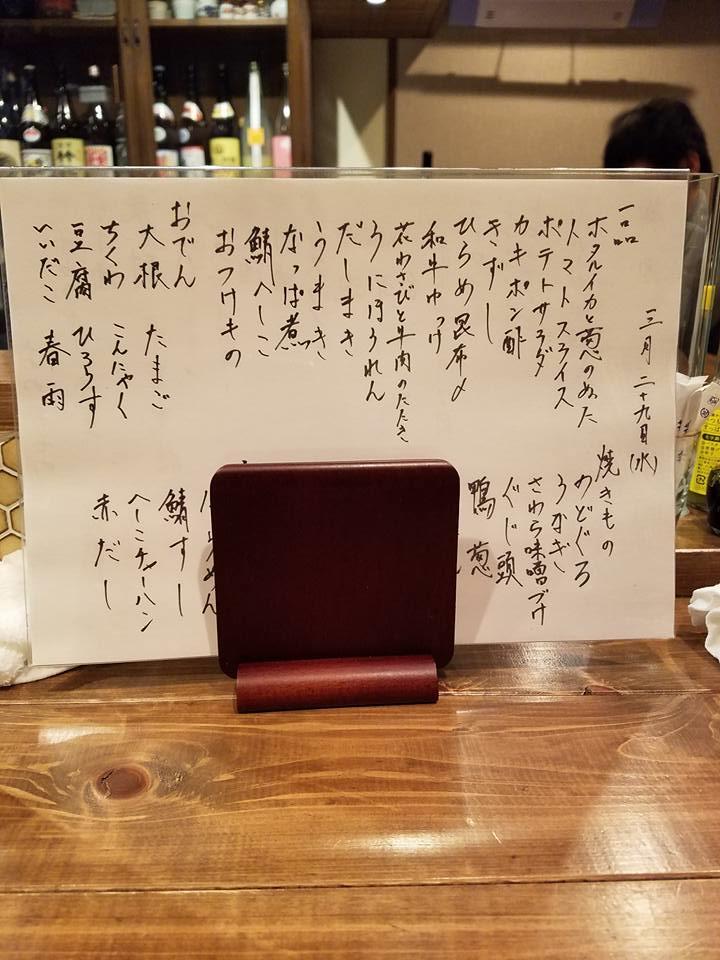 三月二十九日(水)
一品
ホタルイカと葱のぬた
トマトスライス
ポテトサラダ
カキポン酢
きずし
ひらめ昆布〆
和牛ゆっけ
花わさびと牛肉のたたき
うにほうれん
だしまき
うまき
なっぱ煮
鯖へしこ
おつけもの
おでん
大根 たまご
ちくわ こんにゃく
豆腐 ひろうす
いいだこ 春雨
焼きもの
のどぐろ
うなぎ
さわら味噌づけ
ぐじ頭
鴨 葱
めん
鯖すし
へしこチャーハン
赤だし